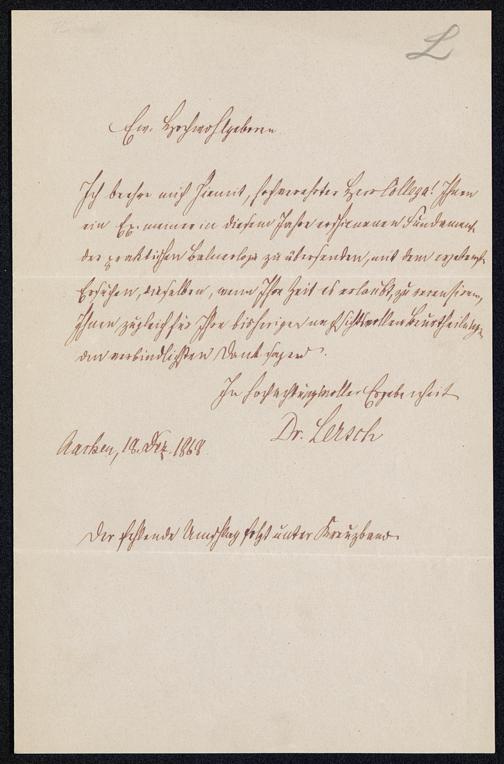 L
Ew. Hochwohlgeboren
Ich beehre mich hiermit, hochverehrter Herr Collega! Ihnen
ein Ex. meiner in diesem Jahre erschienenen Fundamente
der praktischen Balneologie zu übersenden, mit dem
Ersuchen, dieselben, wenn Ihre Zeit es erlaubt, zu recensiren,
Ihnen zugleich für Ihre bisherigen Beurtheilungen
den verbindlichsten Dank sagend.
In hochachtungsvoller Ergebenheit
Dr. Lersch
Aachen, 18. Dez. 1868
Der fehlende Umschlag folgt unter Kreuzband.